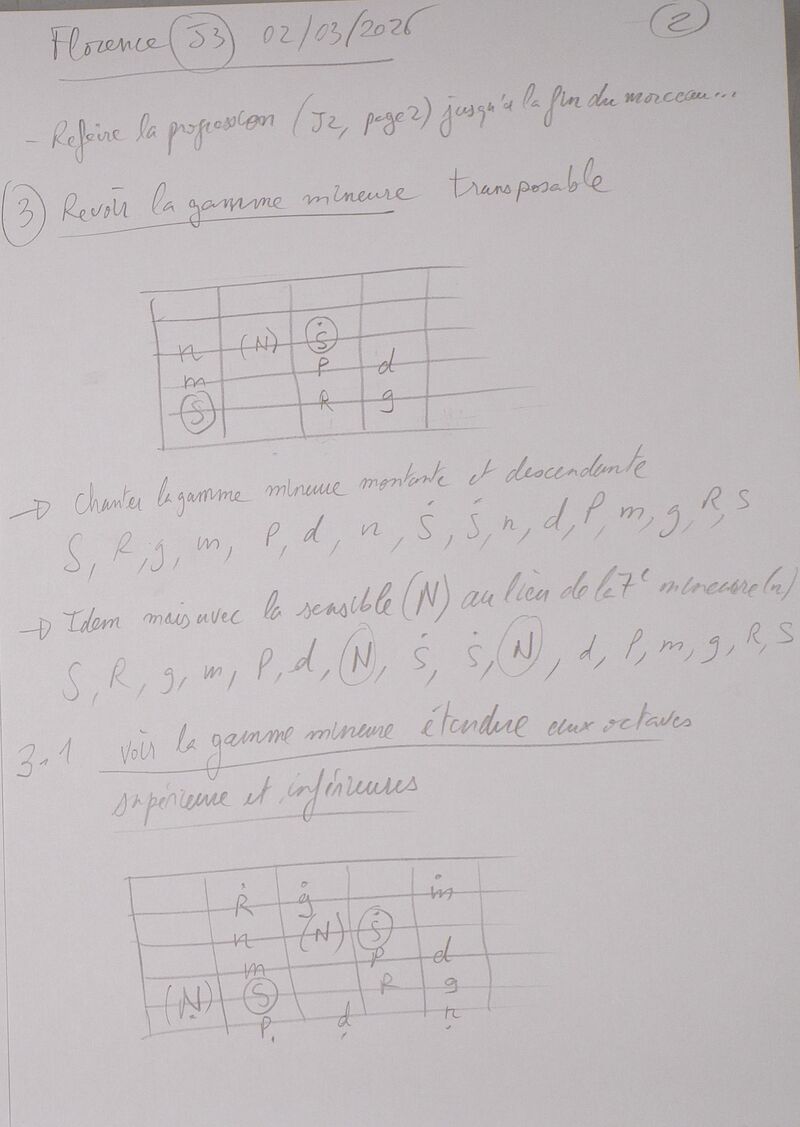 Florence J3 02/03/2026
2
- Refaire la progression (J2, page 2) jusqu'à la fin du morceau...
3 Revoir la gamme mineure transposable
n (N) Ṡ
m P d
S R g
→ Chanter la gamme mineure montante et descendante
S, R, g, m, P, d, n, Ṡ, Ṡ, n, d, P, m, g, R, S
→ Idem mais avec la sensible (N) au lieu de la 7e mineure (n)
S, R, g, m, P, d, N, Ṡ, Ṡ, N, d, P, m, g, R, S
3.1 voir la gamme mineure étendue aux octaves
supérieure et inférieures
Ṙ ġ ṁ
n (N) Ṡ
m P d
(Ṇ) S R g
P̣ ḍ ṇ